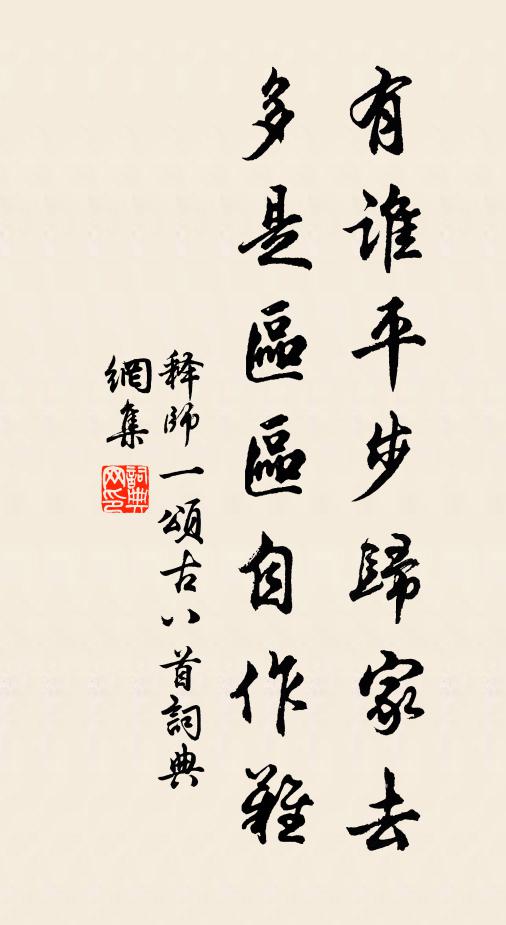 有誰平步歸家去
多是區區自作難
释師一頌古八首詞典
網集
詞典
网印